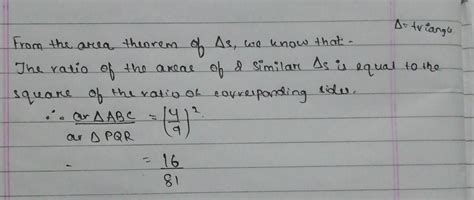 Δ = triangle
From the area theorem of Δs, we know that -
The ratio of the areas of 2 similar Δs is equal to the
square of the ratio of corresponding sides.
∴ ar ΔABC / ar ΔPQR = (4/9)²
= 16/81